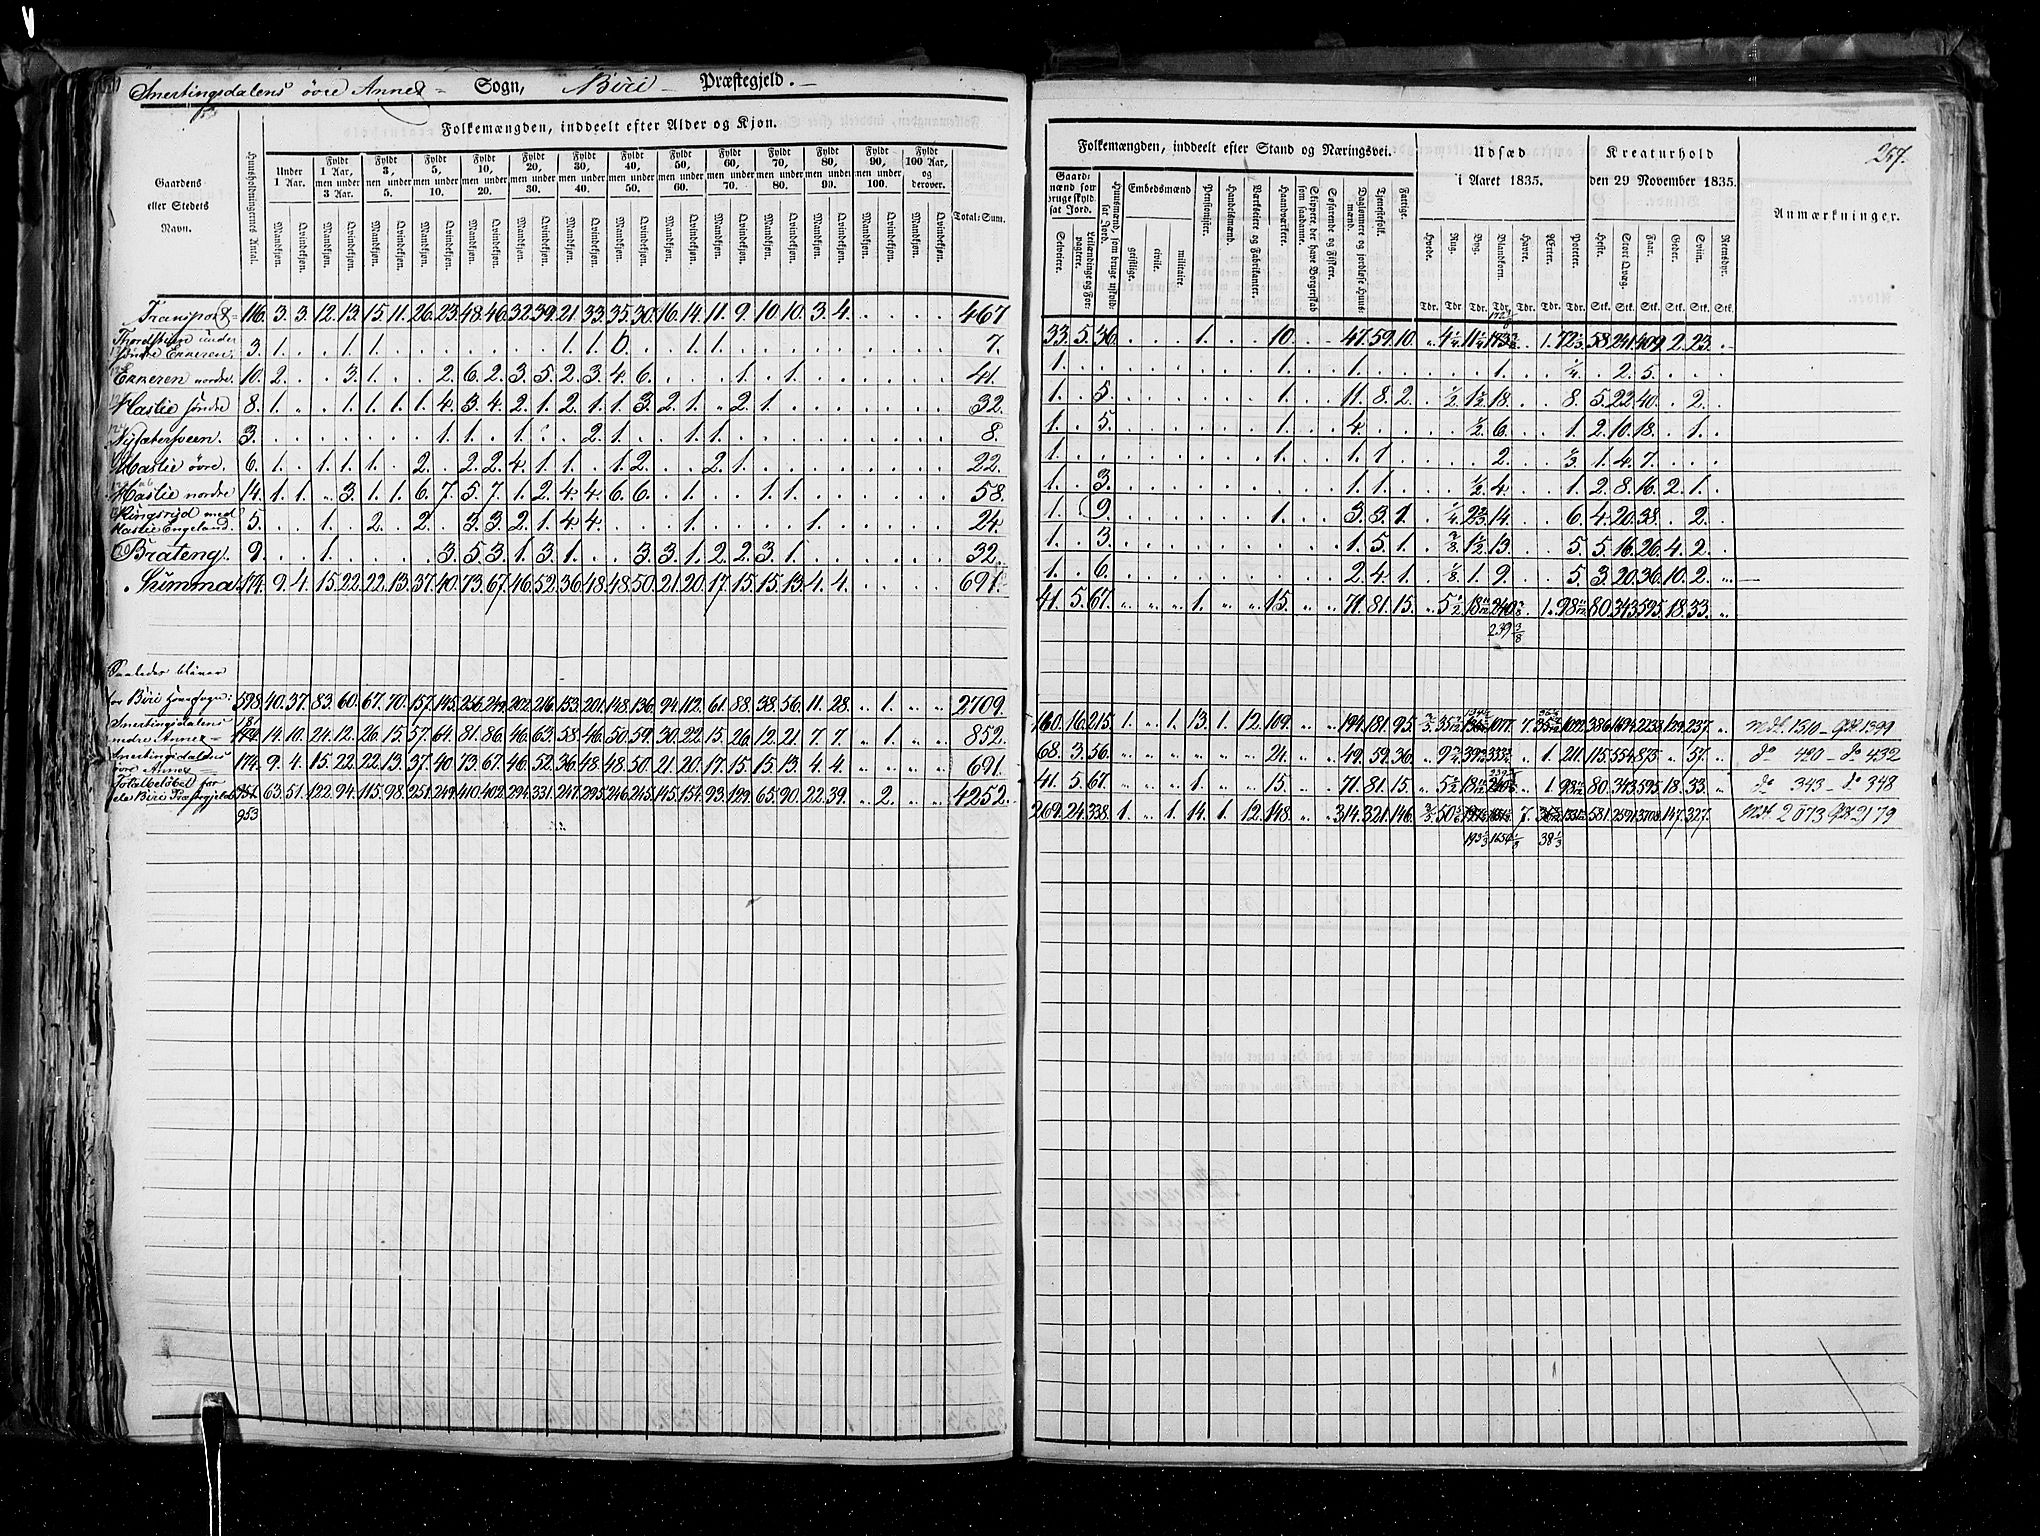 Snertingsdalens øvre Annex - Sogn, Biri - Præstegjeld. -
Folkemængden, inddeelt efter Alder og Kjøn.
Gaardens eller Stedets Navn.
Huusholdningernes Antal.
Under 1 Aar.
Fyldt 1 Aar, men under 3 Aar.
Fyldt 3, men under 5.
Fyldt 5, men under 10.
Fyldt 10, men under 20.
Fyldt 20, men under 30.
Fyldt 30, men under 40.
Fyldt 40, men under 50.
Fyldt 50, men under 60.
Fyldt 60, men under 70.
Fyldt 70, men under 80.
Fyldt 80, men under 90.
Fyldt 90, men under 100.
Fyldt 100 Aar, og derover.
Total-Sum.
Mandkjøn. Qvindekjøn.
Transport 116. 3. 3. 12. 13. 15. 11. 26. 23. 48. 46. 32. 39. 21. 33. 35. 30. 16. 14. 11. 9. 10. 10. 3. 4. 467
Thordstuen under
søndre Enneren. 3. 1. 1. 1. 1. 1. 1. 1. 7.
Enneren nordre. 10. 2. 3. 1. 2. 6. 2. 3. 5. 2. 3. 4. 6. 1. 1. 41.
Haslie søndre 8. 1. 1. 1. 1. 1. 4. 3. 4. 2. 1. 2. 1. 1. 3. 2. 1. 2. 1. 32.
Nysætersveen. 3. 1. 1. 1. 2. 1. 1. 1. 8.
Haslie øvre. 6. 1. 1. 1. 1. 2. 2. 2. 4. 1. 1. 1. 2. 2. 1. 22.
Haslie nordre 14. 1. 1. 3. 1. 1. 6. 7. 5. 7. 1. 2. 4. 4. 6. 6. 1. 1. 1. 58.
Kingsrud med
Haslie Engeland. 5. 1. 2. 2. 3. 3. 2. 1. 4. 4. 1. 1. 24.
Bråteng. 9. 1. 3. 5. 3. 1. 3. 1. 3. 3. 1. 2. 2. 3. 1. 32.
Summa. 174. 9. 4. 15. 22. 22. 13. 37. 40. 73. 67. 46. 52. 36. 48. 48. 50. 21. 20. 17. 15. 15. 13. 4. 4. 691.
Saaledes bliver
for Biri Hovedsogn: 598. 40. 37. 83. 60. 67. 70. 157. 145. 256. 249. 202. 216. 153. 201. 148. 136. 94. 112. 61. 88. 38. 56. 11. 28. 1. 2709.
Snertingsdalens 181
nedre Annex 14. 10. 24. 12. 26. 15. 57. 64. 81. 86. 46. 63. 58. 46. 50. 59. 30. 22. 15. 26. 12. 21. 7. 7. 1. 852.
Snertingsdalens
øvre Annex 174. 9. 4. 15. 22. 22. 13. 37. 40. 73. 67. 46. 52. 36. 48. 48. 50. 21. 20. 17. 15. 15. 13. 4. 4. 691.
Totalbeløbet for
hele Biri Præstegjeld 63. 51. 122. 94. 115. 98. 251. 249. 410. 402. 294. 331. 247. 295. 246. 245. 145. 154. 93. 129. 65. 90. 22. 39. 2. 4252.
953
257.
Folkemængden, inddeelt efter Stand og Næringsvei.
Udsæd i Aaret 1835.
Kreaturhold den 29 November 1835.
Anmærkninger.
Gaardmænd som bruge skyldsat Jord.
Selveiere. Leilændinge og Forpagtere.
Huusmænd, som bruge uskyldsat Jord.
Embedsmænd
geistlige. civile. militaire.
Pensionister. Handelsmænd. Værkseiere og Fabrikanter. Haandværkere.
Skippere, der have Borgerskab som saadanne.
Søfarende og Fiskere.
Daglønnere og jordløse Huusmænd.
Tjenestefolk. Fattige.
Hvede. Rug. Byg. Blandkorn. Havre. Erter. Poteter.
Heste. Stort Qvæg. Faar. Geder. Sviin. Reensdyr.
Tdr. Tdr. Tdr. Tdr. Tdr. Tdr. Tdr. Stk. Stk. Stk. Stk. Stk. Stk.
33. 5. 36. 1. 10. 47. 59. 10. 58. 241. 409. 2. 23.
1. 1. 1. 1. 1/4. 2. 5.
1. 5. 1. 11. 8. 2. 1/2. 1 1/2. 18. 8. 5. 22. 40. 2.
1. 5. 1. 4. 1/2. 6. 1. 2. 10. 18. 1.
1. 1. 1. 1 2. 1. 4. 7.
1. 3. 1. 1. 1/2. 4. 1. 2. 8. 16. 2. 1.
1. 9. 1. 3. 3. 1. 1/4. 14. 6. 4. 20. 38. 2.
1. 3. 1. 5. 1. 1 1/2. 13. 5. 5. 16. 26. 4. 2.
1. 6. 2. 4. 1. 1/8. 1. 9. 5. 3. 20. 36. 10. 2.
41. 5. 67. 1. 15. 71. 81. 15. 5 1/2. 1. 80. 343. 595. 18. 33.
239 3/8
160. 16. 215. 1. 1. 13. 1. 12. 109. 194. 181. 95. 7. 386. 1694. 2238. 129. 237. Mdk 1310 - Qdk 1399
68. 3. 56. 24. 49. 59. 36. 1. 211. 115. 554. 875. 57. do 420 - do 432
41. 5. 67. 1. 15. 71. 81. 15. 1. 80. 343. 595. 18. 33. do 343 - do 348
269. 24. 338. 1. 1. 14. 1. 12. 148. 314. 321. 146. 7. 581. 2591. 3708. 147. 327. Mdk 2073 Qdk 2179
38 1/3